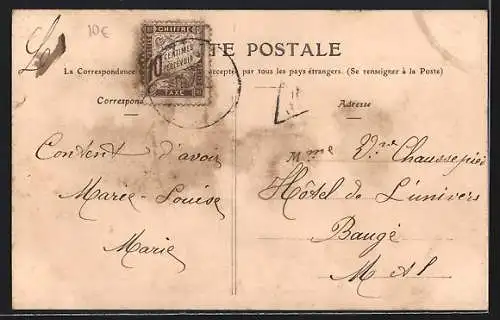 10€
CHIFFRE
10 CENTIMES
A PERCEVOIR
TAXE
TE POSTALE
La Correspondance accepté par tous les pays étrangers. (Se renseigner à la Poste)
Correspond
Adresse
Content d'avoir
Marie-Louise
Marie
Mme Vve Chaussepied
Hôtel de L'univers
Baugé
M et L